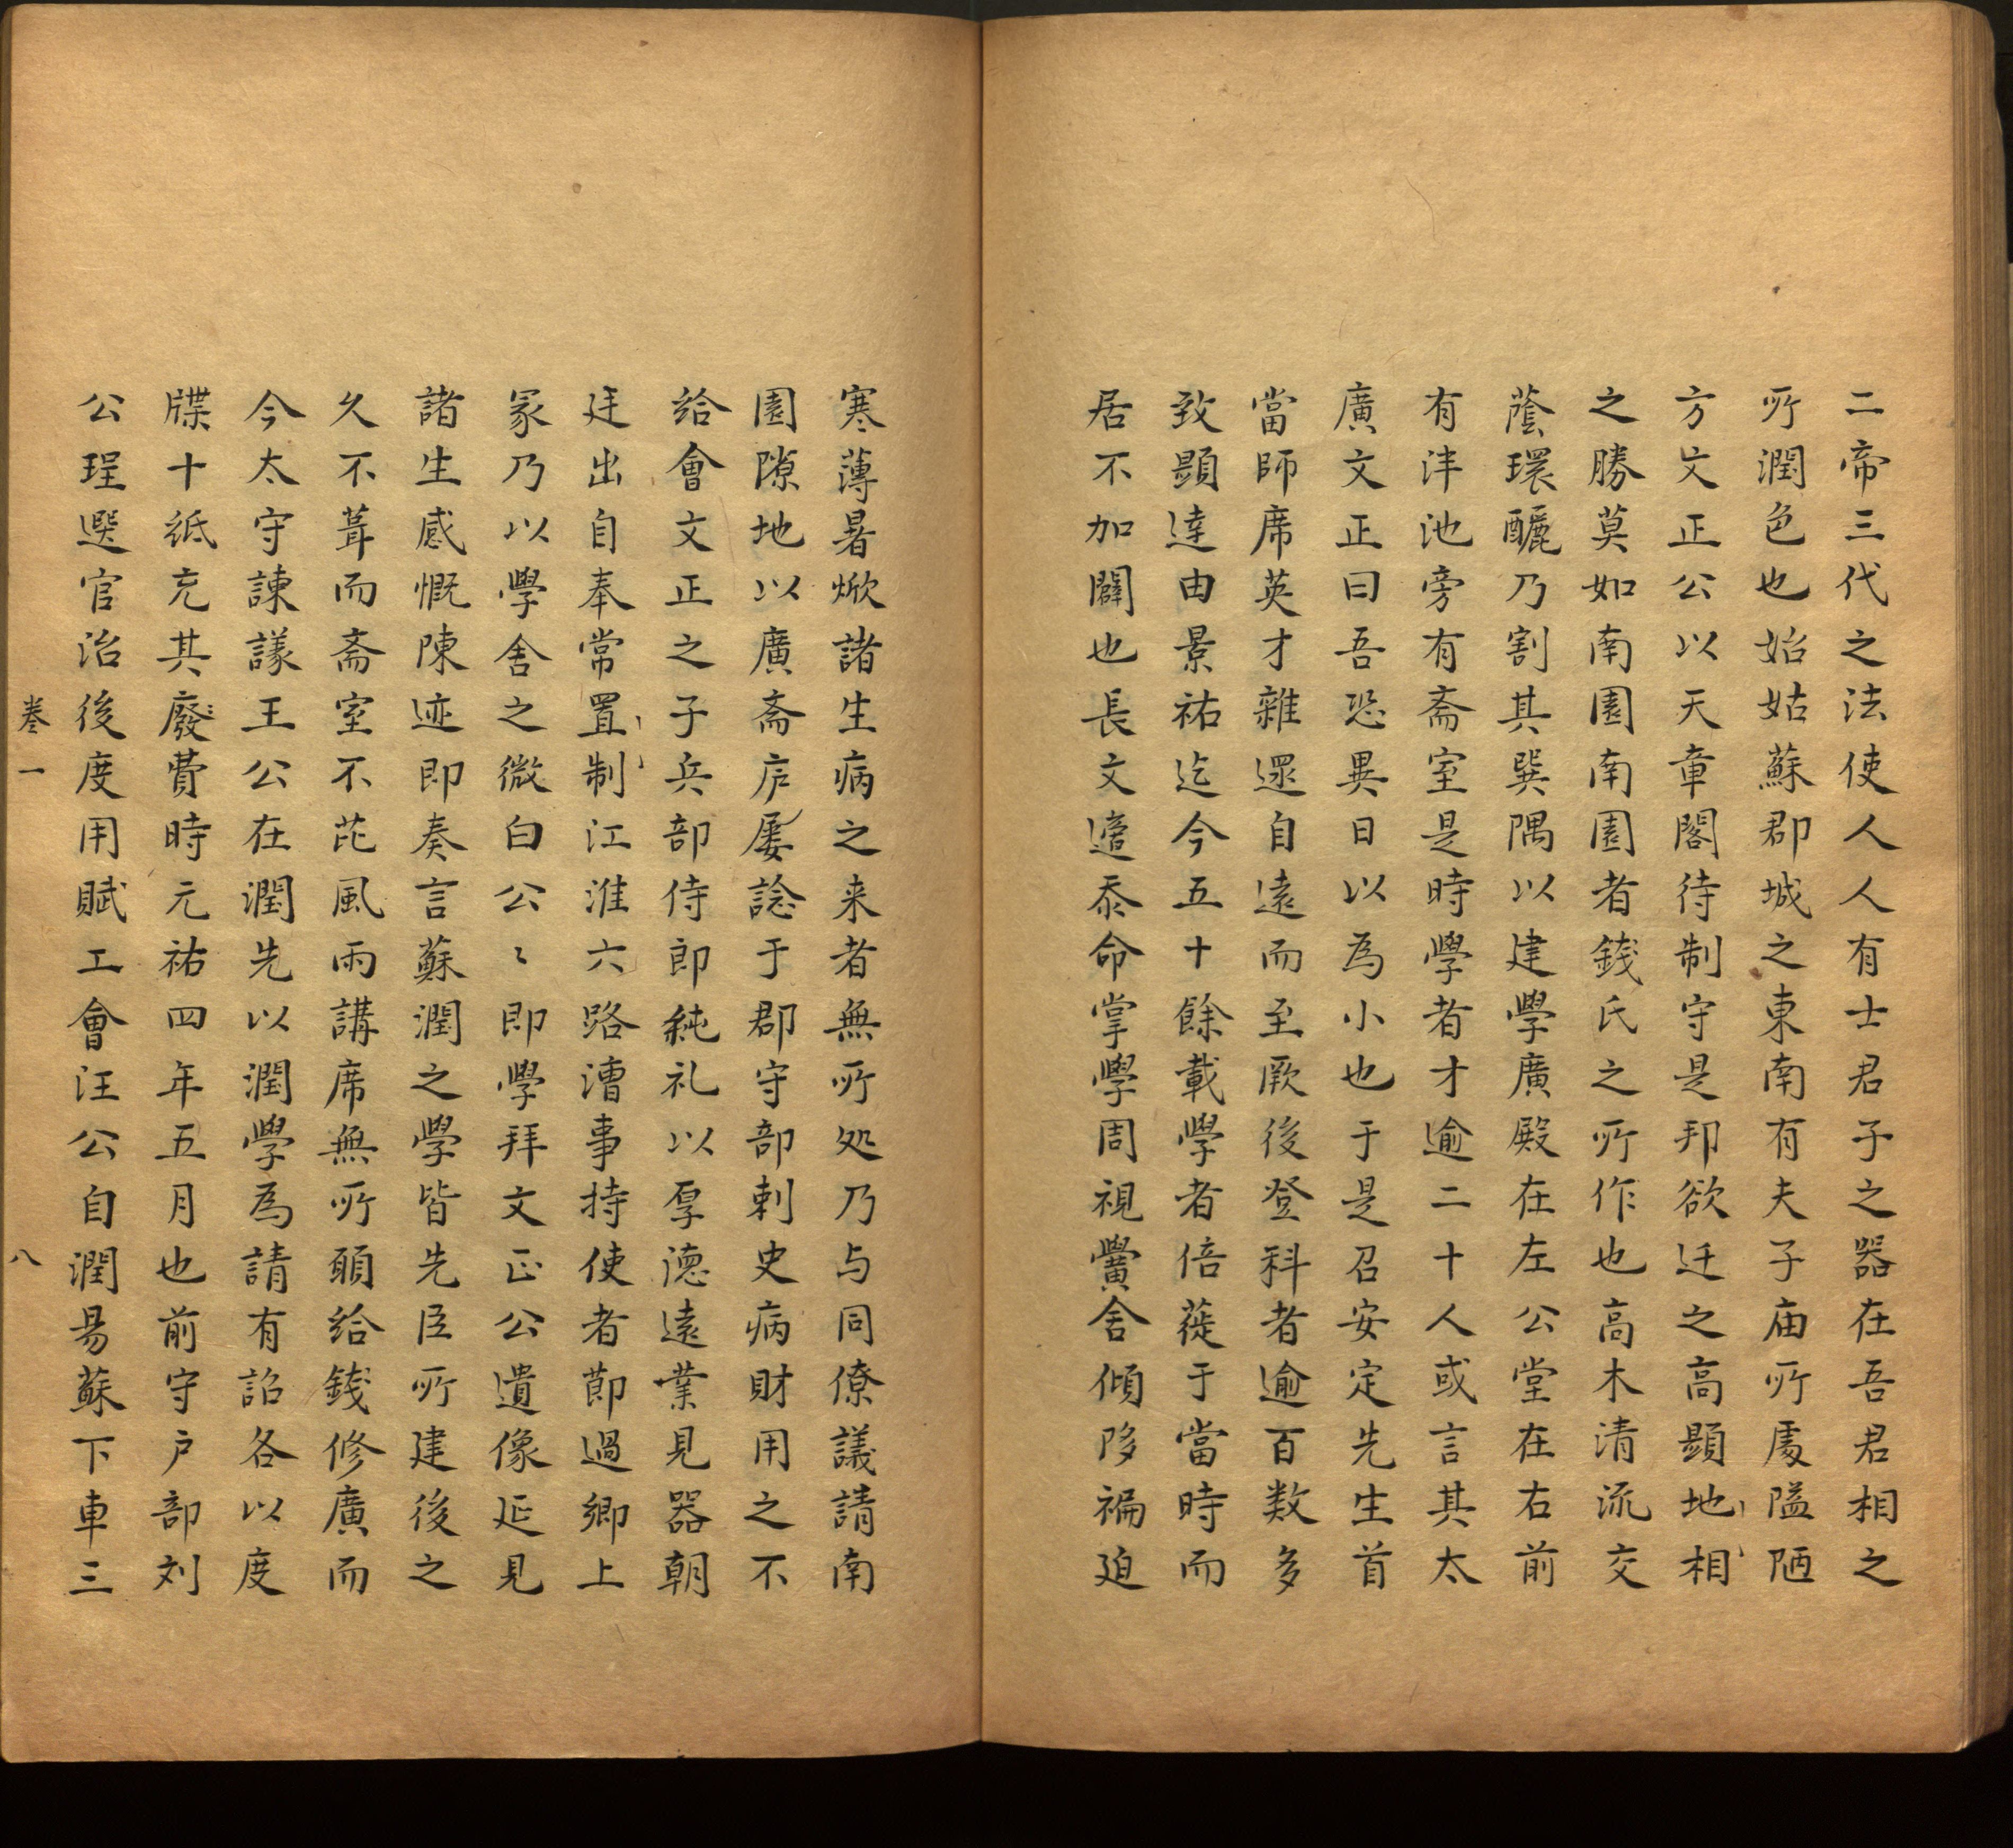 二帝三代之法使人人有士君子之器在吾君相之
所潤色也始姑蘇郡城之東南有夫子庙所處隘陋
方文正公以天章閣待制守是邦欲迁之高顯地相
之勝莫如南園南園者錢氏之所作也高木清流交
蔭環釃乃割其巽隅以建學廣殿在左公堂在右前
有泮池旁有斋室是時學者才逾二十人或言其太
廣文正曰吾恐異日以為小也于是召安定先生首
當師席英才雜遝自遠而至厥後登科者逾百数多
致顯達由景祐迄今五十餘載學者倍蓰于當時而
居不加闢也長文遭忝命掌學周視黌舍傾陊褊迫
寒薄暑焮諸生病之来者無所処乃与同僚議請南
園隙地以廣斋庐屡諗于郡守部刺史病財用之不
給會文正之子兵部侍郎純礼以厚德遠業見器朝
廷出自奉常置制江淮六路漕事持使者莭過鄉上
冢乃以學舍之微白公〻即學拜文正公遺像延見
諸生感慨陳迹即奏言蘇潤之學皆先臣所建後之
久不葺而斋室不芘風雨講席無所頋給錢修廣而
今太守諫議王公在潤先以潤學為請有詔各以度
牒十紙充其廢費時元祐四年五月也前守户部刘
公珵選官治後度用賦工會汪公自潤易蘇下車三
卷一
八